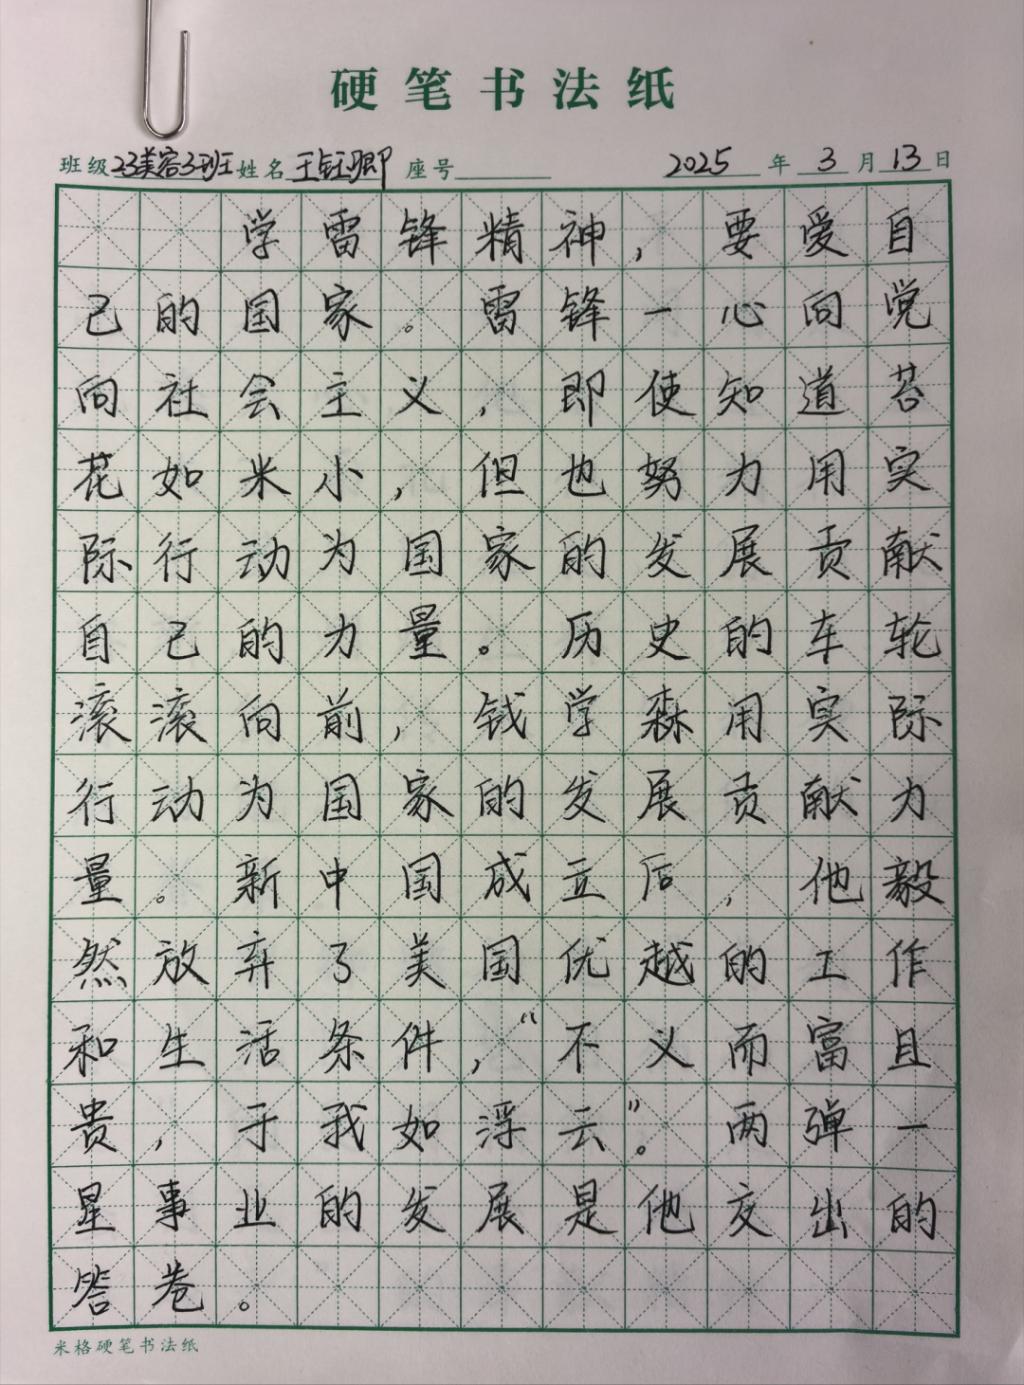 硬笔书法纸
班级 23美容3班 姓名 王钰卿 座号 2025 年 3 月 13 日
学雷锋精神，要爱自
己的国家。雷锋一心向党
向社会主义，即使知道苔
花如米小，但也努力用实
际行动为国家的发展贡献
自己的力量。历史的车轮
滚滚向前，钱学森用实际
行动为国家的发展贡献力
量。新中国成立后，他毅
然放弃了美国优越的工作
和生活条件，“不义而富且
贵，于我如浮云”。两弹一
星事业的发展是他交出的
答卷。
米格硬笔书法纸